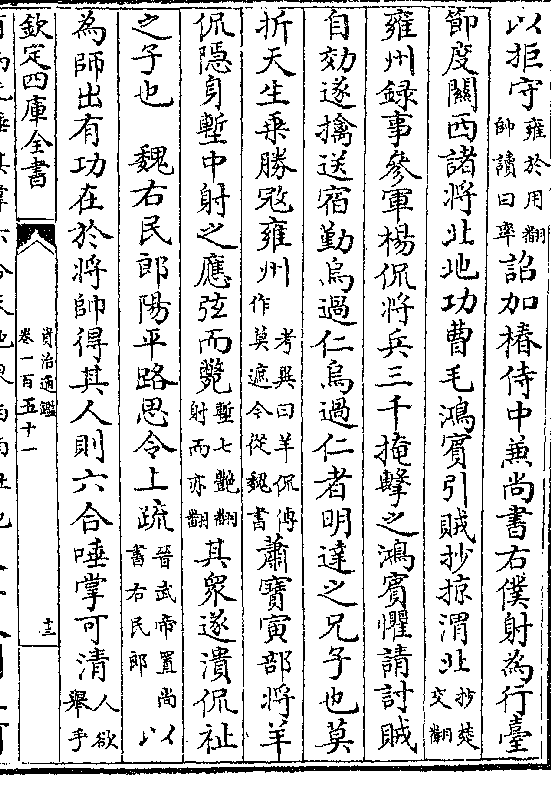 以拒守雍於用翻帥讀曰率詔加椿侍中兼尚書右僕射為行臺
節度關西諸將北地功曹毛鴻賓引賊抄掠渭北抄楚交翻
雍州録事參軍楊侃將兵三千掩擊之鴻賓懼請討賊
自効遂擒送宿勤烏過仁烏過仁者明達之兄子也莫
折天生乘勝寇雍州考異曰羊侃傳作莫遮今從魏書蕭寶寅部將羊
侃隱身塹中射之應弦而斃塹七艷翻射而亦翻其衆遂潰侃祉
之子也　魏右民郎陽平路思令上疏晉武帝置尚書右民郎以
為師出有功在於將帥得其人則六合唾掌可清人欲舉手
欽定四庫全書
資治通鑑
卷一百五十一
十三